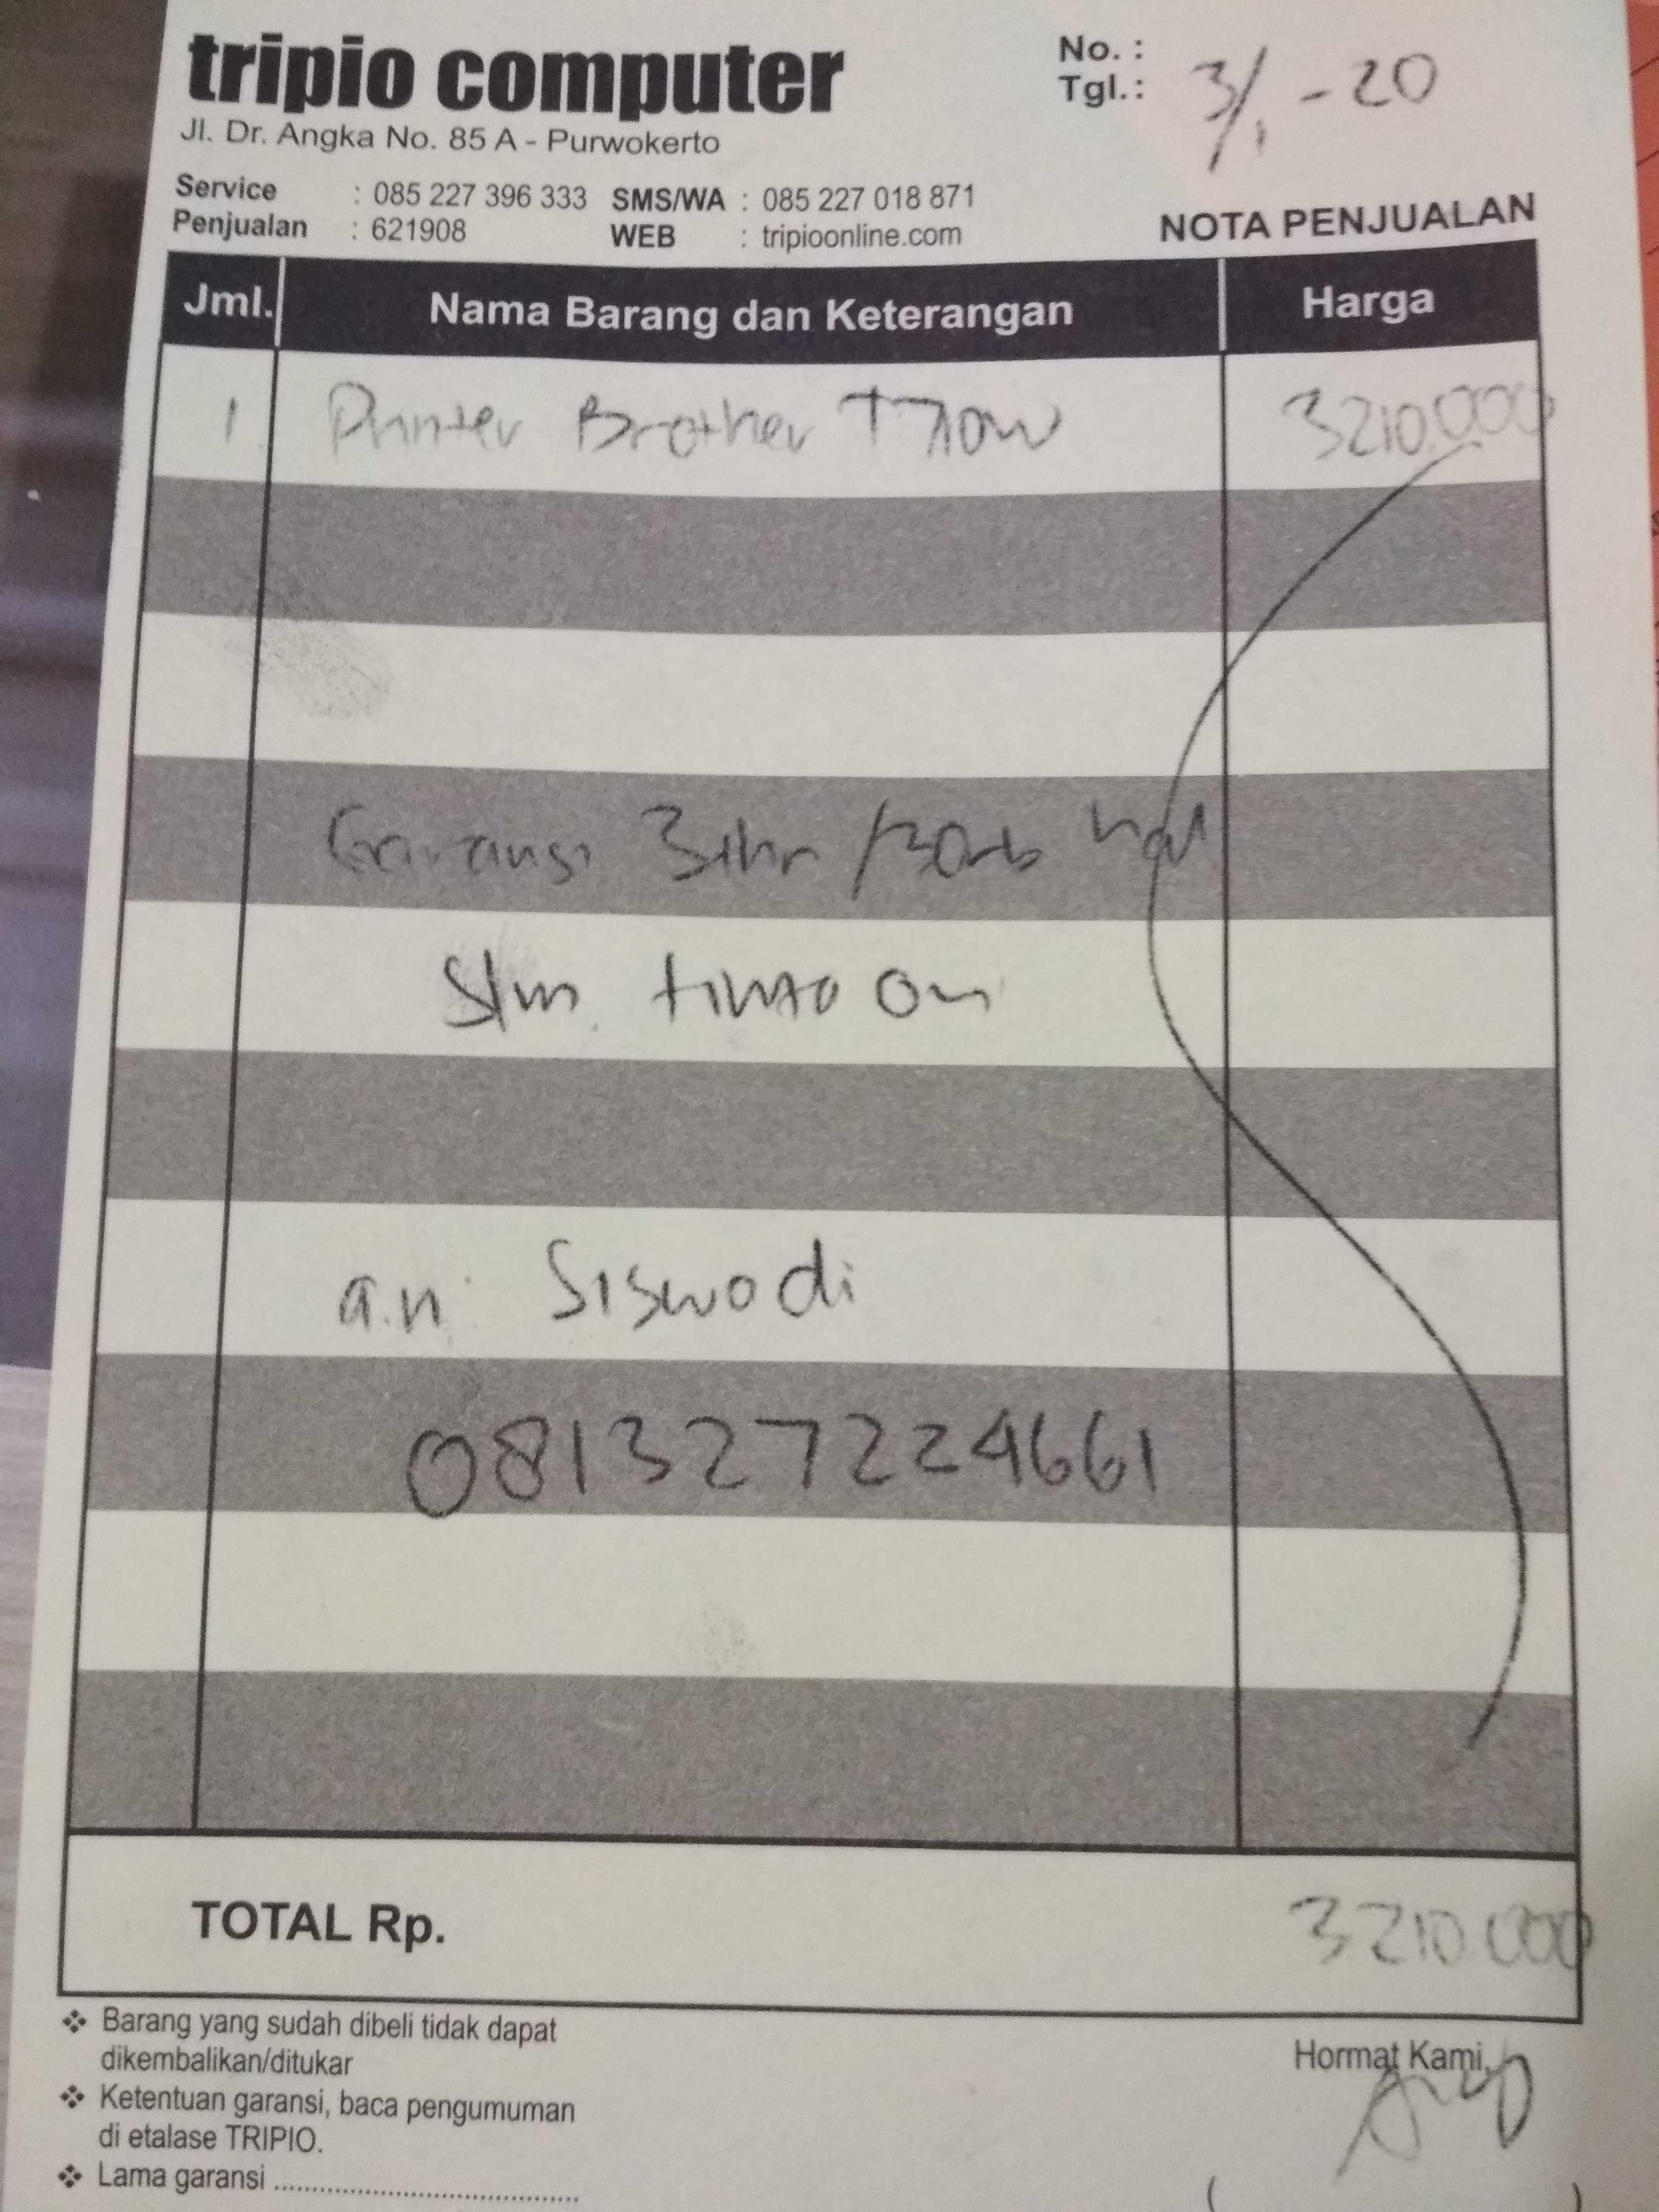 tripio computer
Jl. Dr. Angka No. 85 A - Purwokerto
No. :
Tgl.: 3/1 - 20
Service : 085 227 396 333 SMS/WA : 085 227 018 871
Penjualan : 621908 WEB : tripioonline.com
NOTA PENJUALAN
Jml. Nama Barang dan Keterangan Harga
1 Printer Brother T710W 3210.000
Garansi 3thn /30rb hal
a.n. Siswodi
081327224661
TOTAL Rp. 3210.000
❖ Barang yang sudah dibeli tidak dapat
dikembalikan/ditukar
❖ Ketentuan garansi, baca pengumuman
di etalase TRIPIO.
❖ Lama garansi ........................................
Hormat Kami,
( )